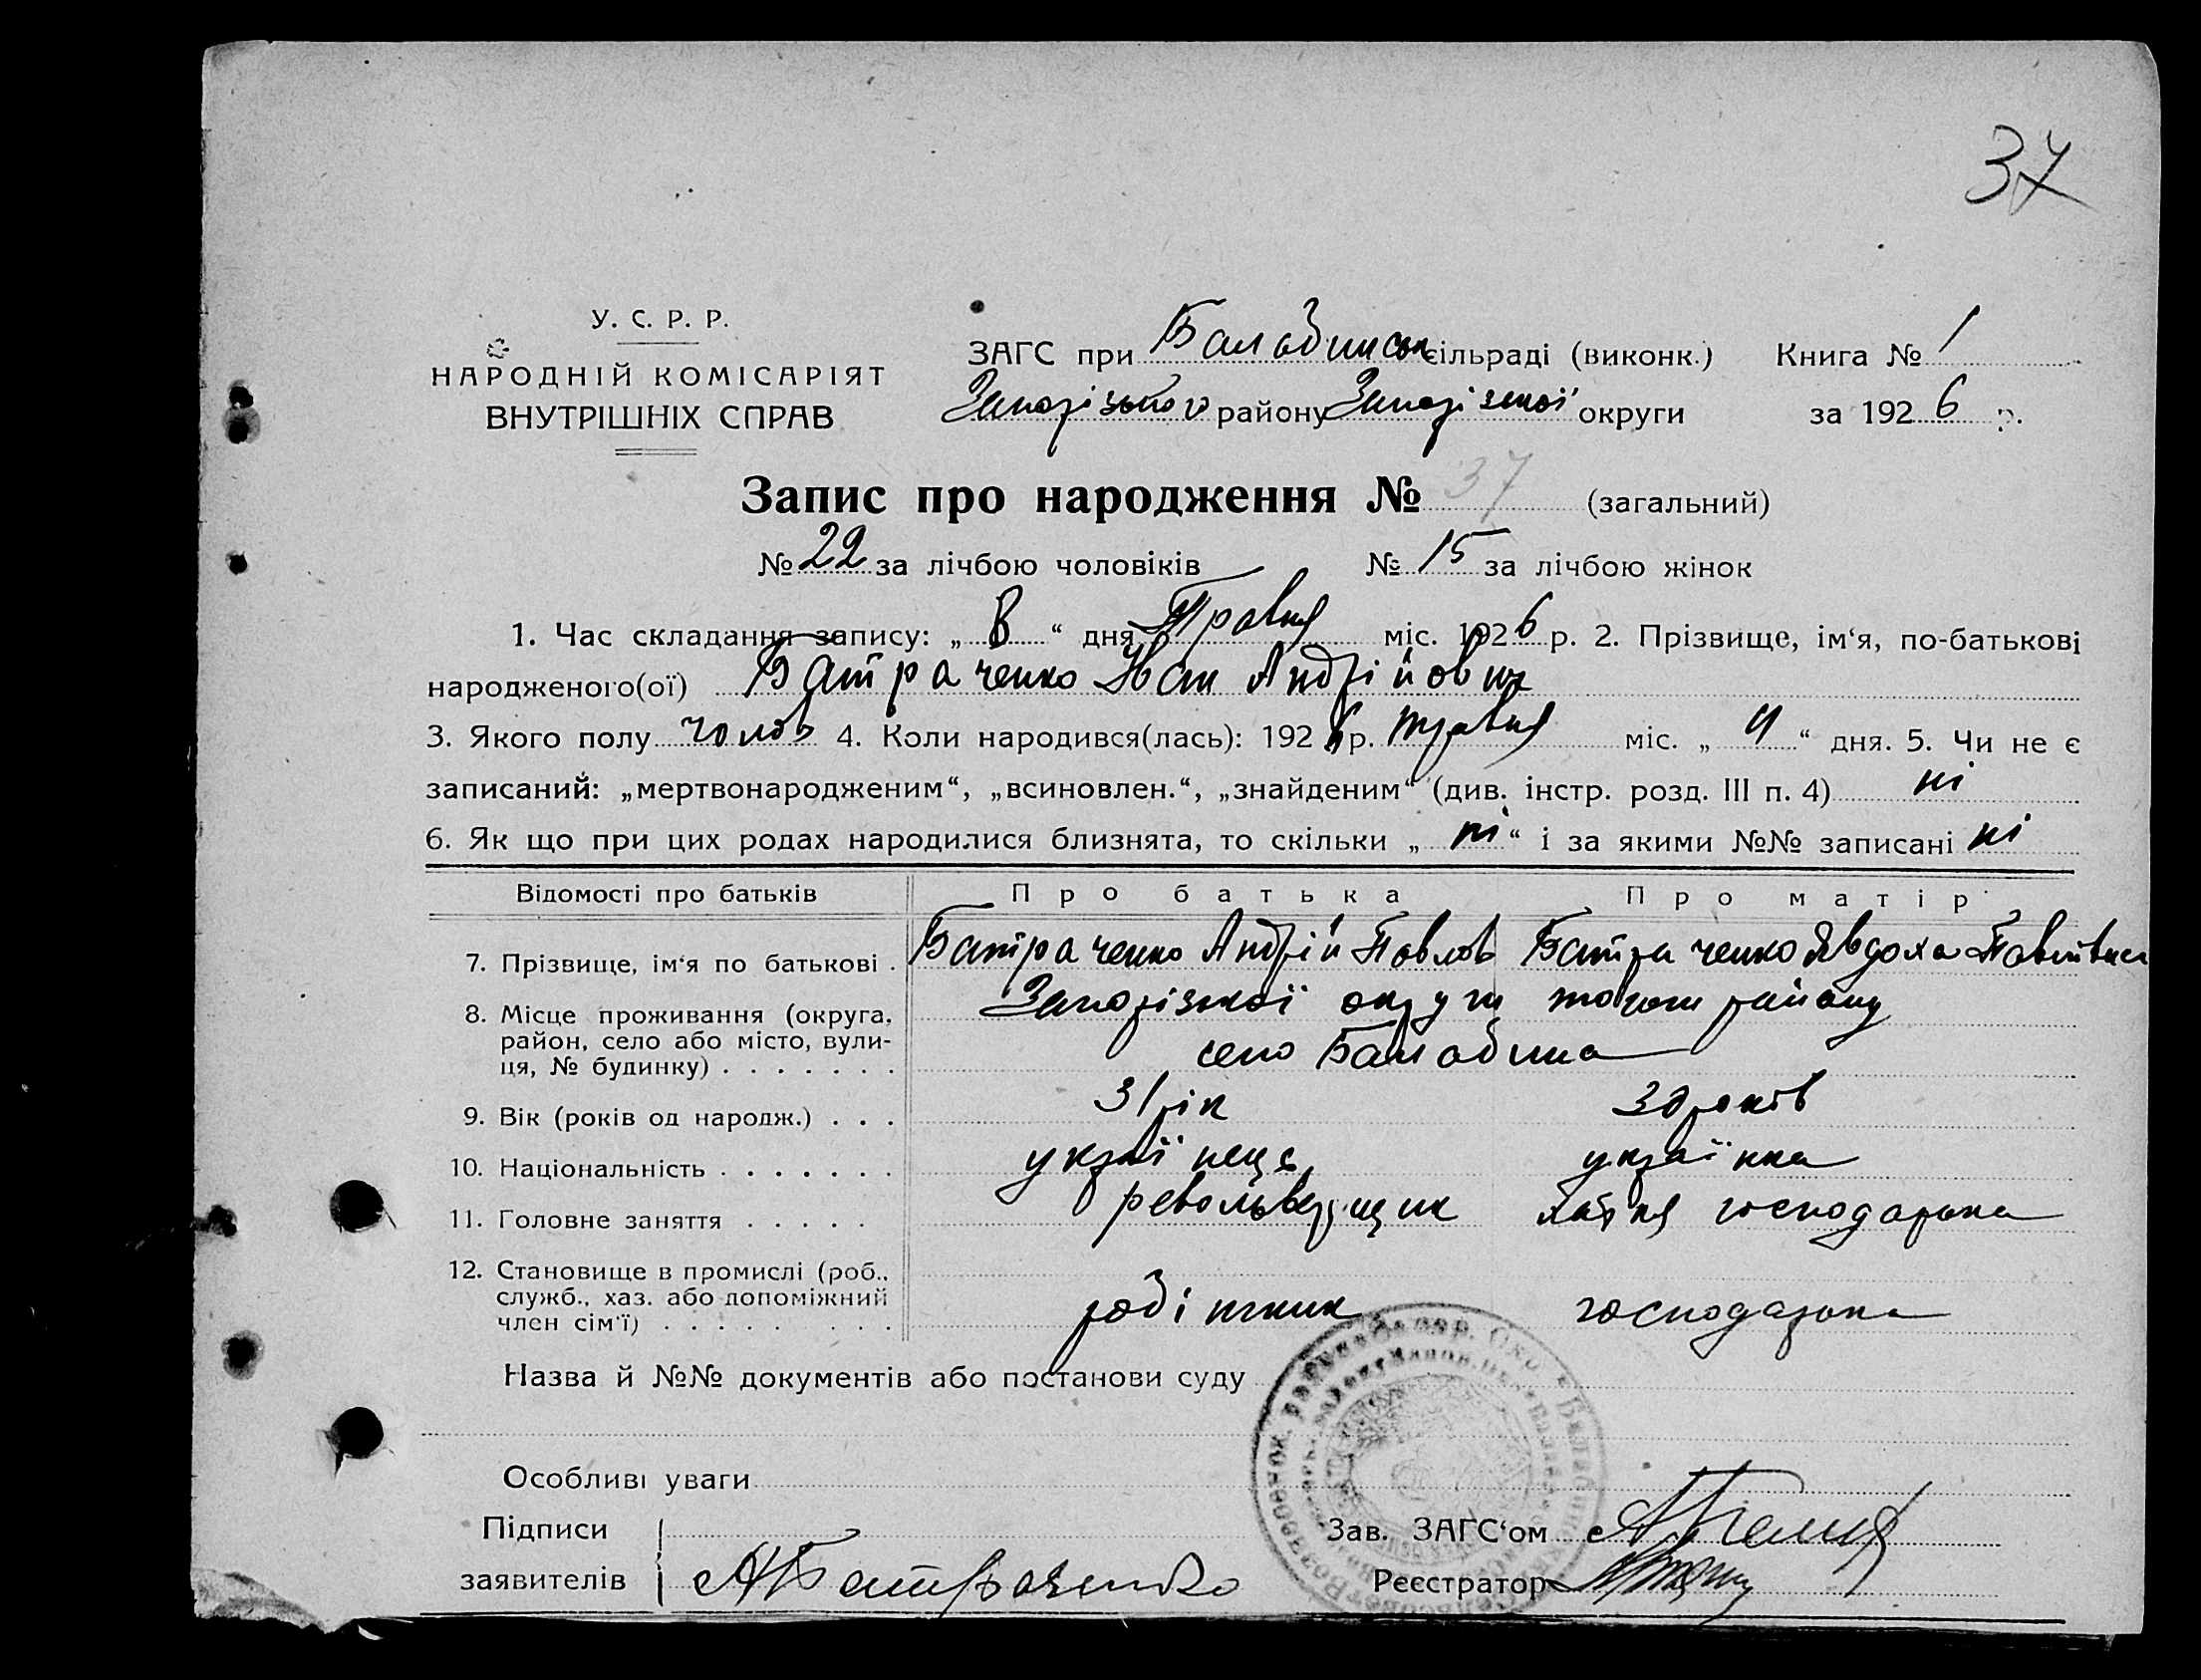 37
У. С. Р. Р.
НАРОДНІЙ КОМІСАРІЯТ
ВНУТРІШНІХ СПРАВ
ЗАГС при Балабинськ сільраді (виконк.) Книга № 1
Запорізького району Запорізької округи за 1926 р.
Запис про народження № 37 (загальний)
№ 22 за лічбою чоловіків № 15 за лічбою жінок
1. Час складання запису: „ 8 “ дня Травня міс. 1926 р. 2. Прізвище, ім‘я, по-батькові
народженого(ої) Батраченко Іван Андрійович
3. Якого полу чолов 4. Коли народився(лась): 1926 р. травня міс. „ 4 “ дня. 5. Чи не є
записаний: „мертвонародженим“, „всиновлен.“, „знайденим“ (див. інстр. розд. III п. 4) ні
6. Як що при цих родах народилися близнята, то скільки „ ні “ і за якими №№ записані ні
Відомості про батьків Про батька Про матір
7. Прізвище, ім‘я по батькові . Батраченко Андрій Павлов Батраченко Явдоха
8. Місце проживання (округа, Запорізької округи того ж району
район, село або місто, вули-
ця, № будинку) . . . . . . . село Балабина
9. Вік (років од народж.) . . . 31 рік 30 років
10. Національність . . . . . . . українець українка
11. Головне заняття . . . . . револьверщик хатня господарька
12. Становище в промислі (роб.,
служб., хаз. або допоміжний
член сім‘ї) . . . . . . . . робітник господарька
Назва й №№ документів або постанови суду
Особливі уваги
Підписи
Зав. ЗАГС‘ом
заявителів А Батраченко Реєстратор